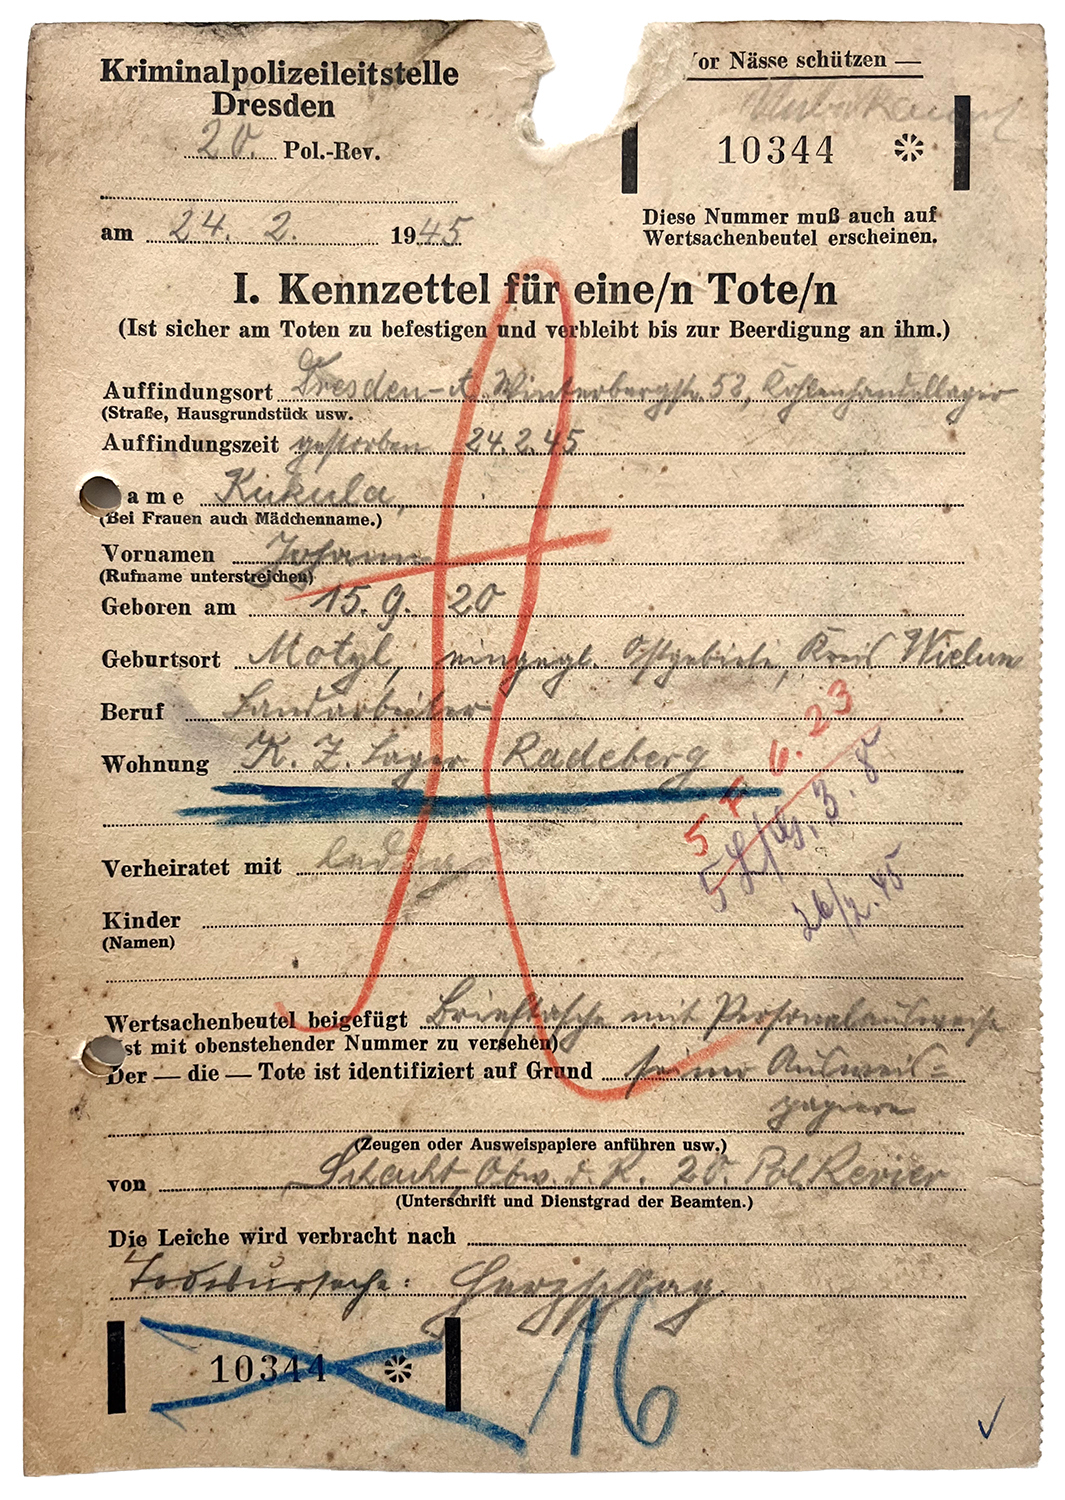 Kriminalpolizeileitstelle
Dresden
20. Pol.-Rev.
am 24. 2. 1945
or Nässe schützen —
10344
Diese Nummer muß auch auf
Wertsachenbeutel erscheinen.
I. Kennzettel für eine/n Tote/n
(Ist sicher am Toten zu befestigen und verbleibt bis zur Beerdigung an ihm.)
Auffindungsort Dresden-A. Winterbergstr. 58, Kohlenhandellager
(Straße, Hausgrundstück usw.
Auffindungszeit gestorben 24.2.45
ame Kukula,
(Bei Frauen auch Mädchenname.)
Vornamen Johann
(Rufname unterstreichen)
Geboren am 15. 9. 20
Geburtsort Motyl, eingegl. Ostgebiete, Kreis Wielun
Beruf Landarbeiter
Wohnung K. Z. Lager Radeberg
6. 23
26/2. 45
Verheiratet mit ledig
Kinder
(Namen)
Wertsachenbeutel beigefügt Brieftasche mit Personalausweise
st mit obenstehender Nummer zu versehen)
Der — die — Tote ist identifiziert auf Grund seiner Ausweis=
papiere
(Zeugen oder Ausweispapiere anführen usw.)
von Schacht, Obw. d. R. 20. Pol. Revier
(Unterschrift und Dienstgrad der Beamten.)
Die Leiche wird verbracht nach
Todesursache: Herzschlag.
10344
16